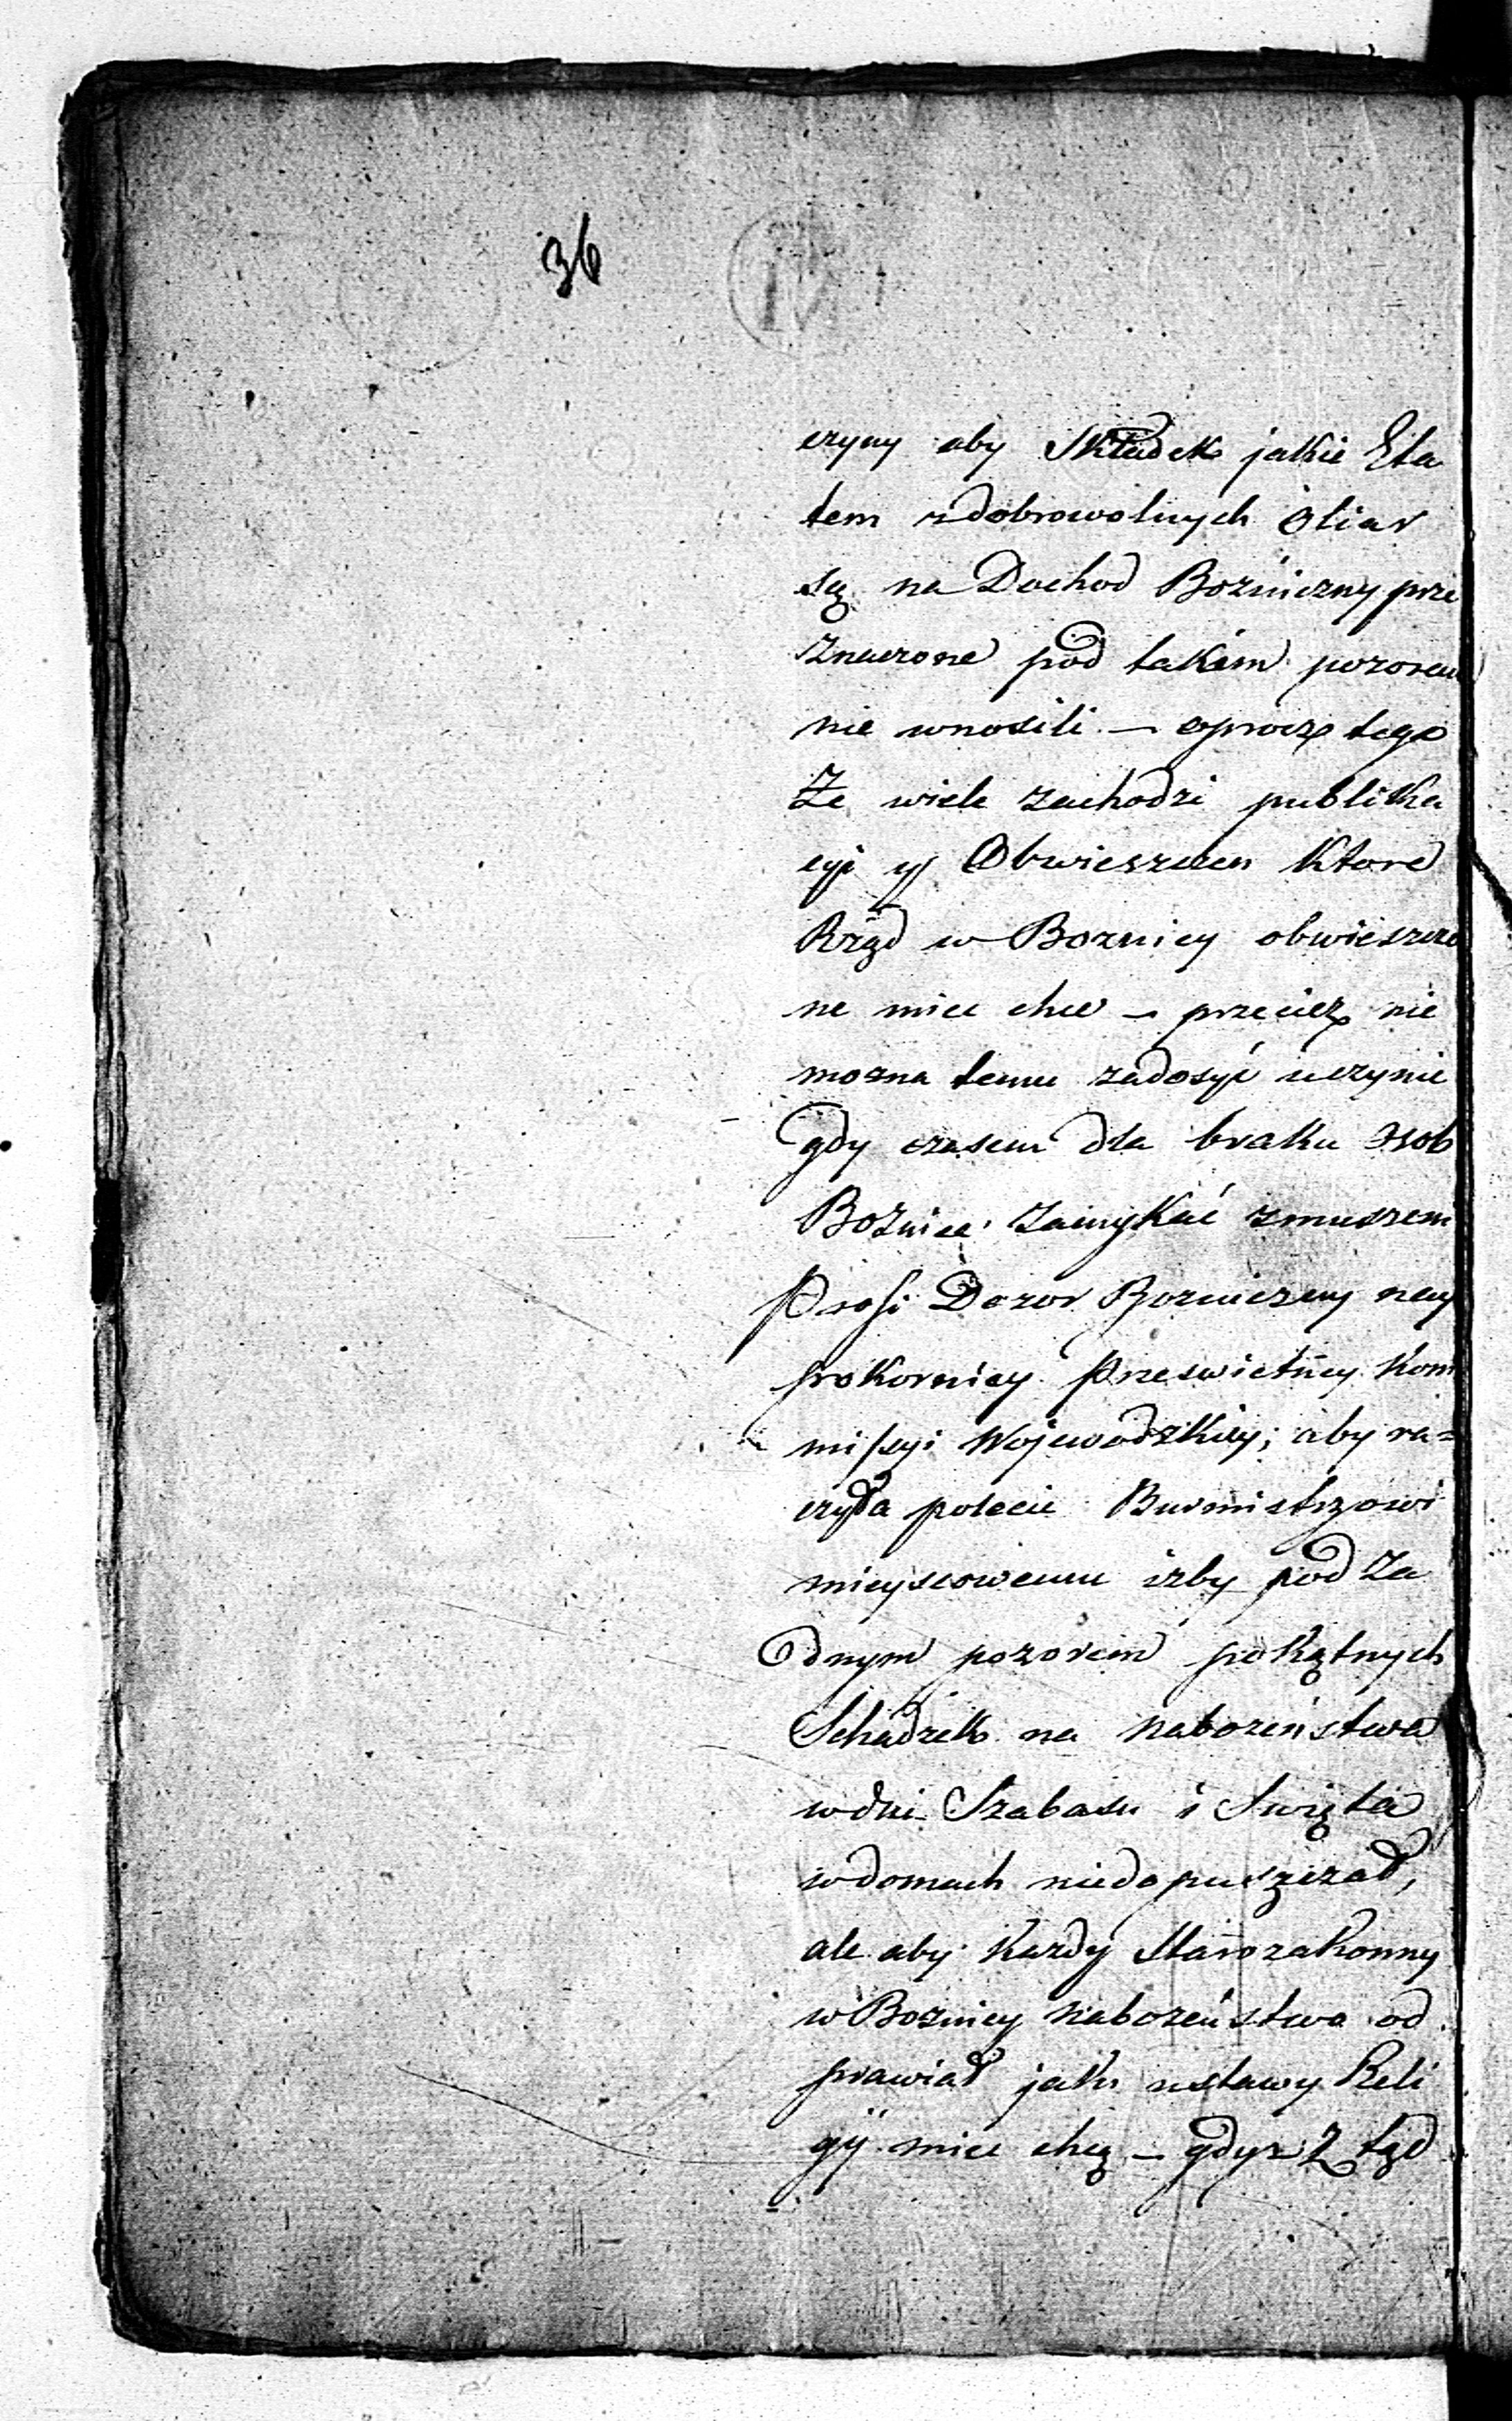 36
czyny aby Składek jakie Eta
tem z dobrowolnych ofiar
są na Dochod Bożniczny prze
znaczone pod takiem pozorem
nie wnosili – oprocz tego
Ze wiele zachodzi publika
cyi y Obwieszczen ktore
Rząd w Boznicy obwieszczo
ne miec chce – przeciez nie
mozna temu zadosyć uczynic
gdy czasem dla braku osob
Boznice zamykać zmuszeni
Prosi Dozor Bozniczny nay
pokorniey Przeswietney Kom
missyi Wojewodzkiey; aby ra=
czyła polecic Burmistrzowi
mieyscowemu izby pod Za
dnym pozorem pokątnych
Schadzek na nabozeństwa
w dni Szabasu i Swięta
w domach niedopuszczał,
ale aby kazdy Starozakonny
w Boznicy nabozeństwa od
prawiał jak ustawy Reli
gij miec chcą – gdyz Z tąd